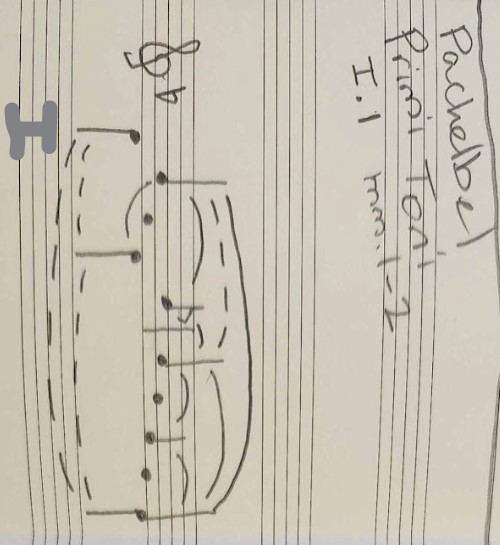 Pachelbel
Primi Toni
I.1 mm. 1-2
I